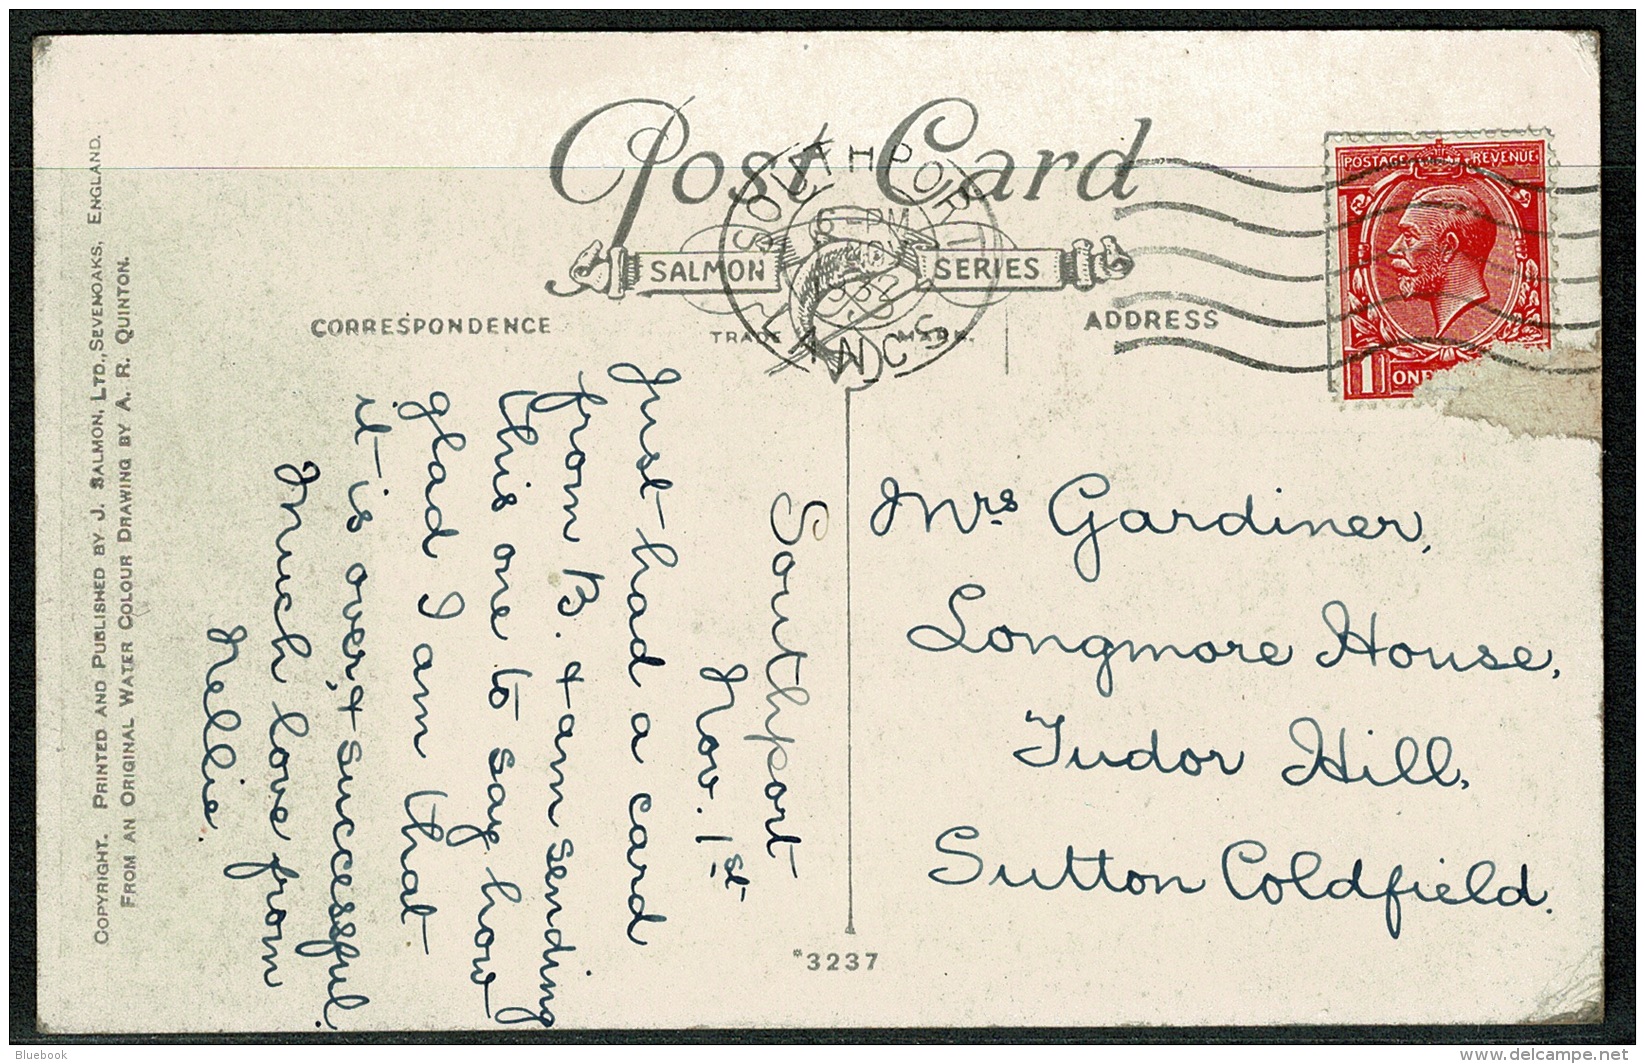 Post Card
SALMON SERIES
TRADE MARK.
CORRESPONDENCE
ADDRESS
SOUTHPORT
LANCS
6 - PM
POSTAGE REVENUE
1 ONE
Southport
Nov. 1st
Just had a card
from B. & am sending
this one to say how
glad I am that
it is over, & successful.
Much love from
Nellie.
Mrs Gardiner,
Longmore House,
Tudor Hill,
Sutton Coldfield.
*3237
COPYRIGHT. PRINTED AND PUBLISHED BY J. SALMON, LTD., SEVENOAKS, ENGLAND.
FROM AN ORIGINAL WATER COLOUR DRAWING BY A. R. QUINTON.
Bluebook
www.delcampe.net